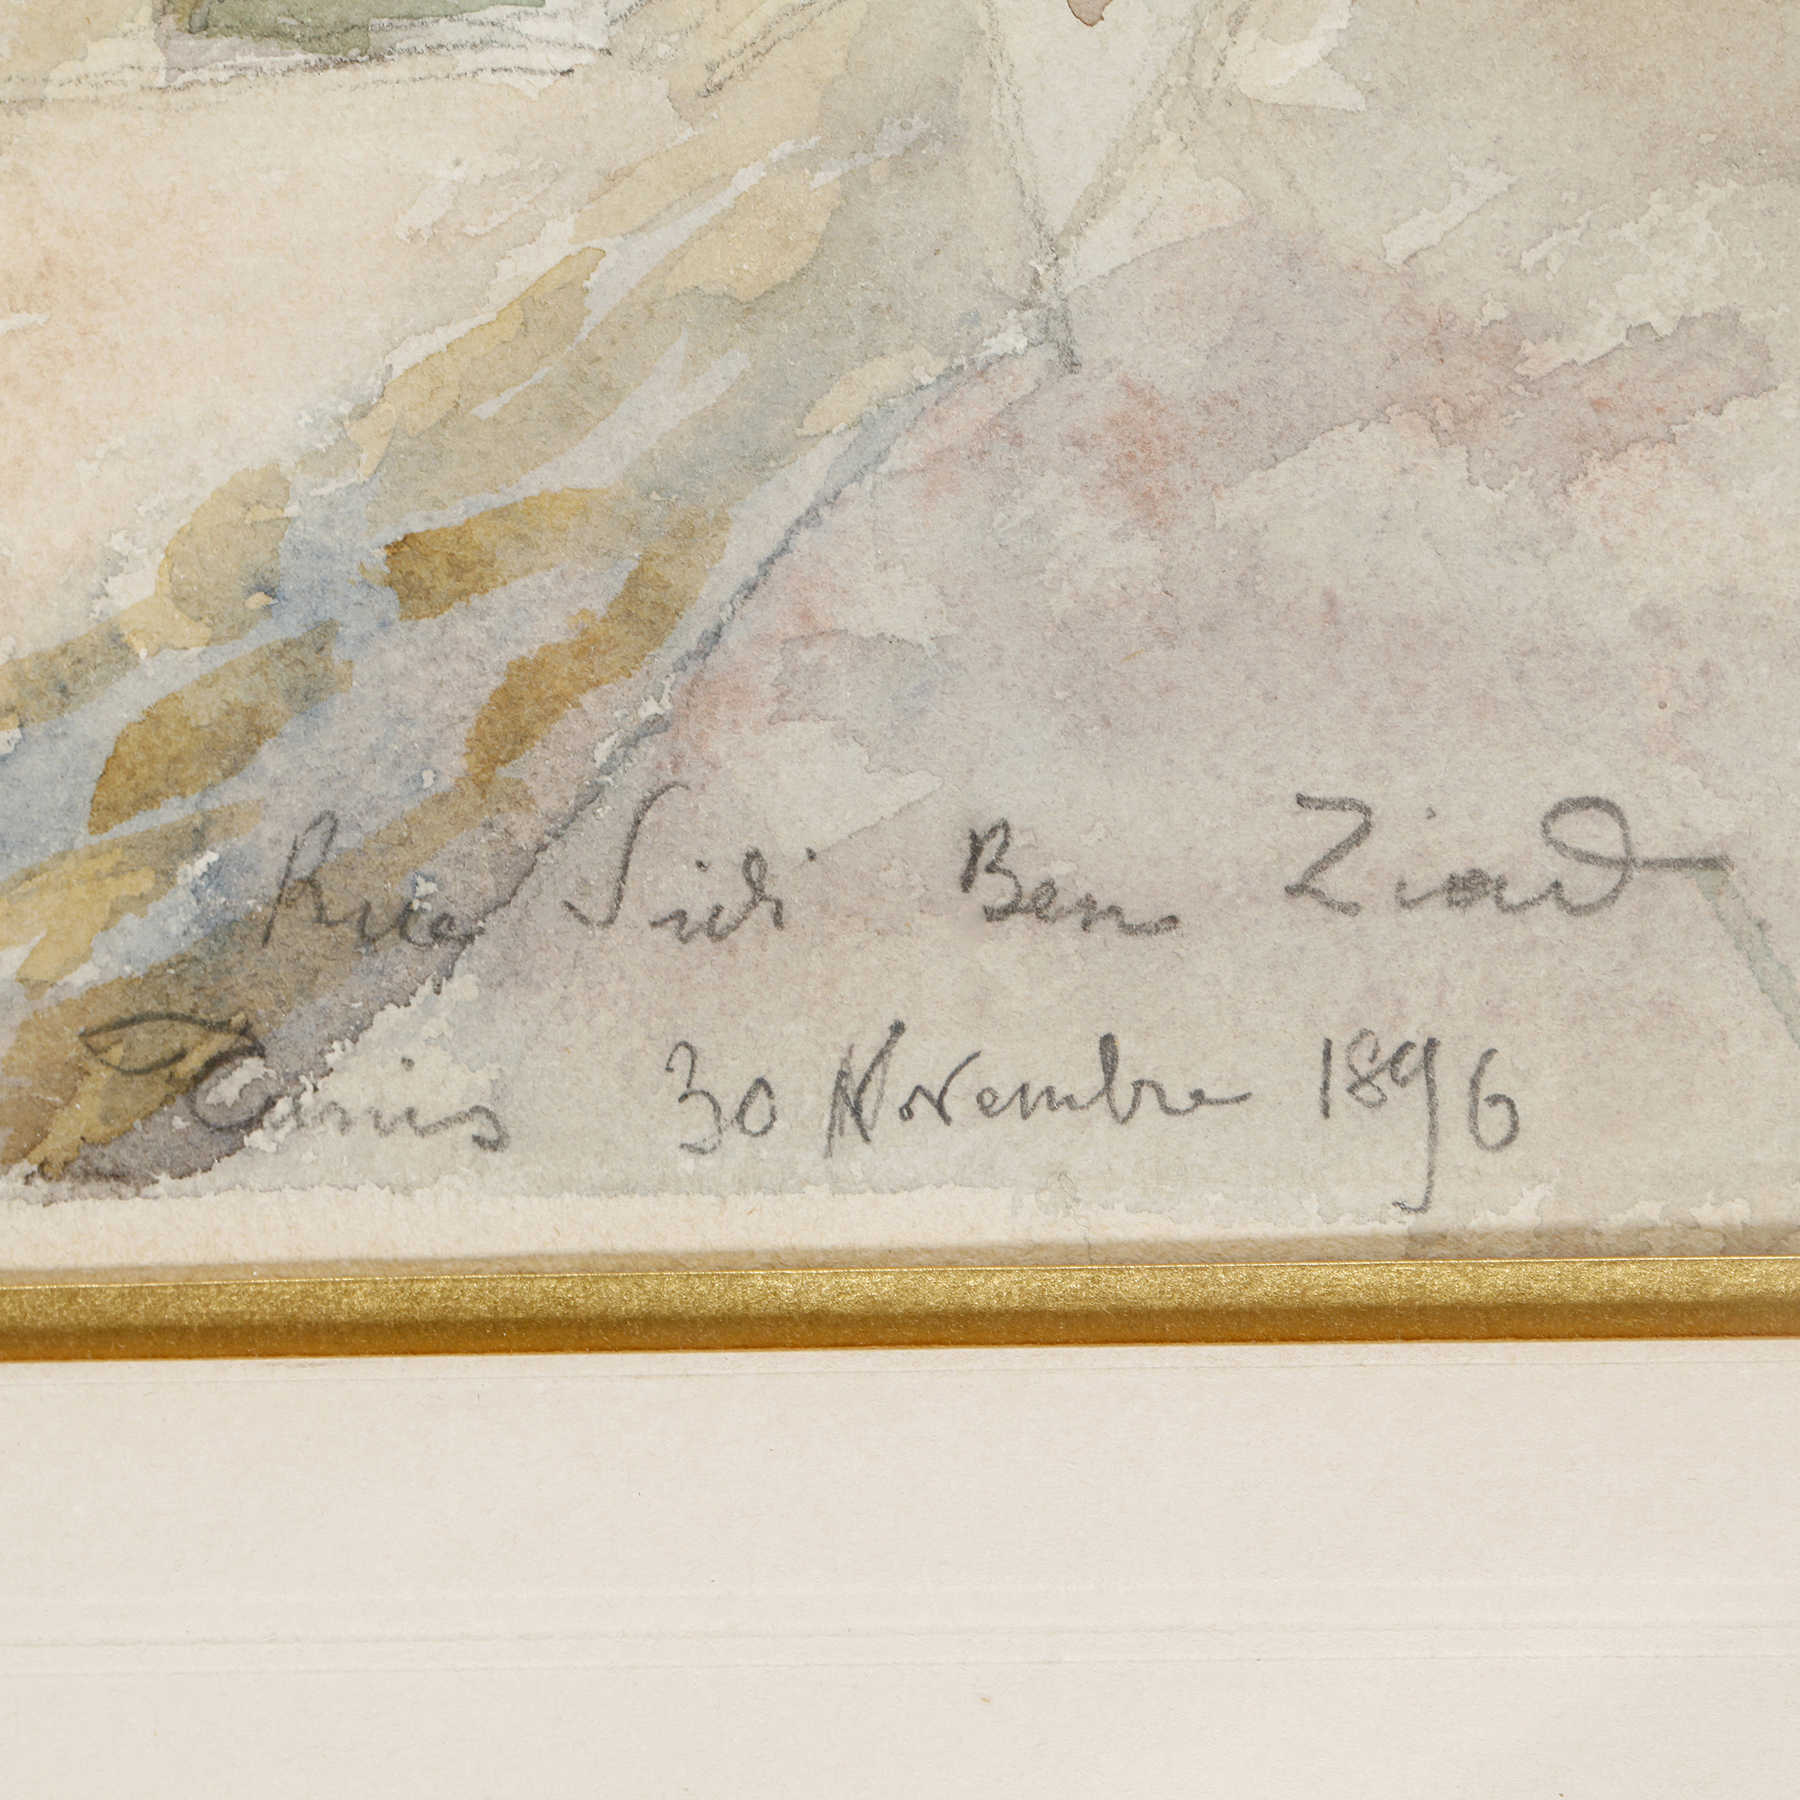 Rue Sidi Ben Ziad
Tunis 30 Novembre 1896